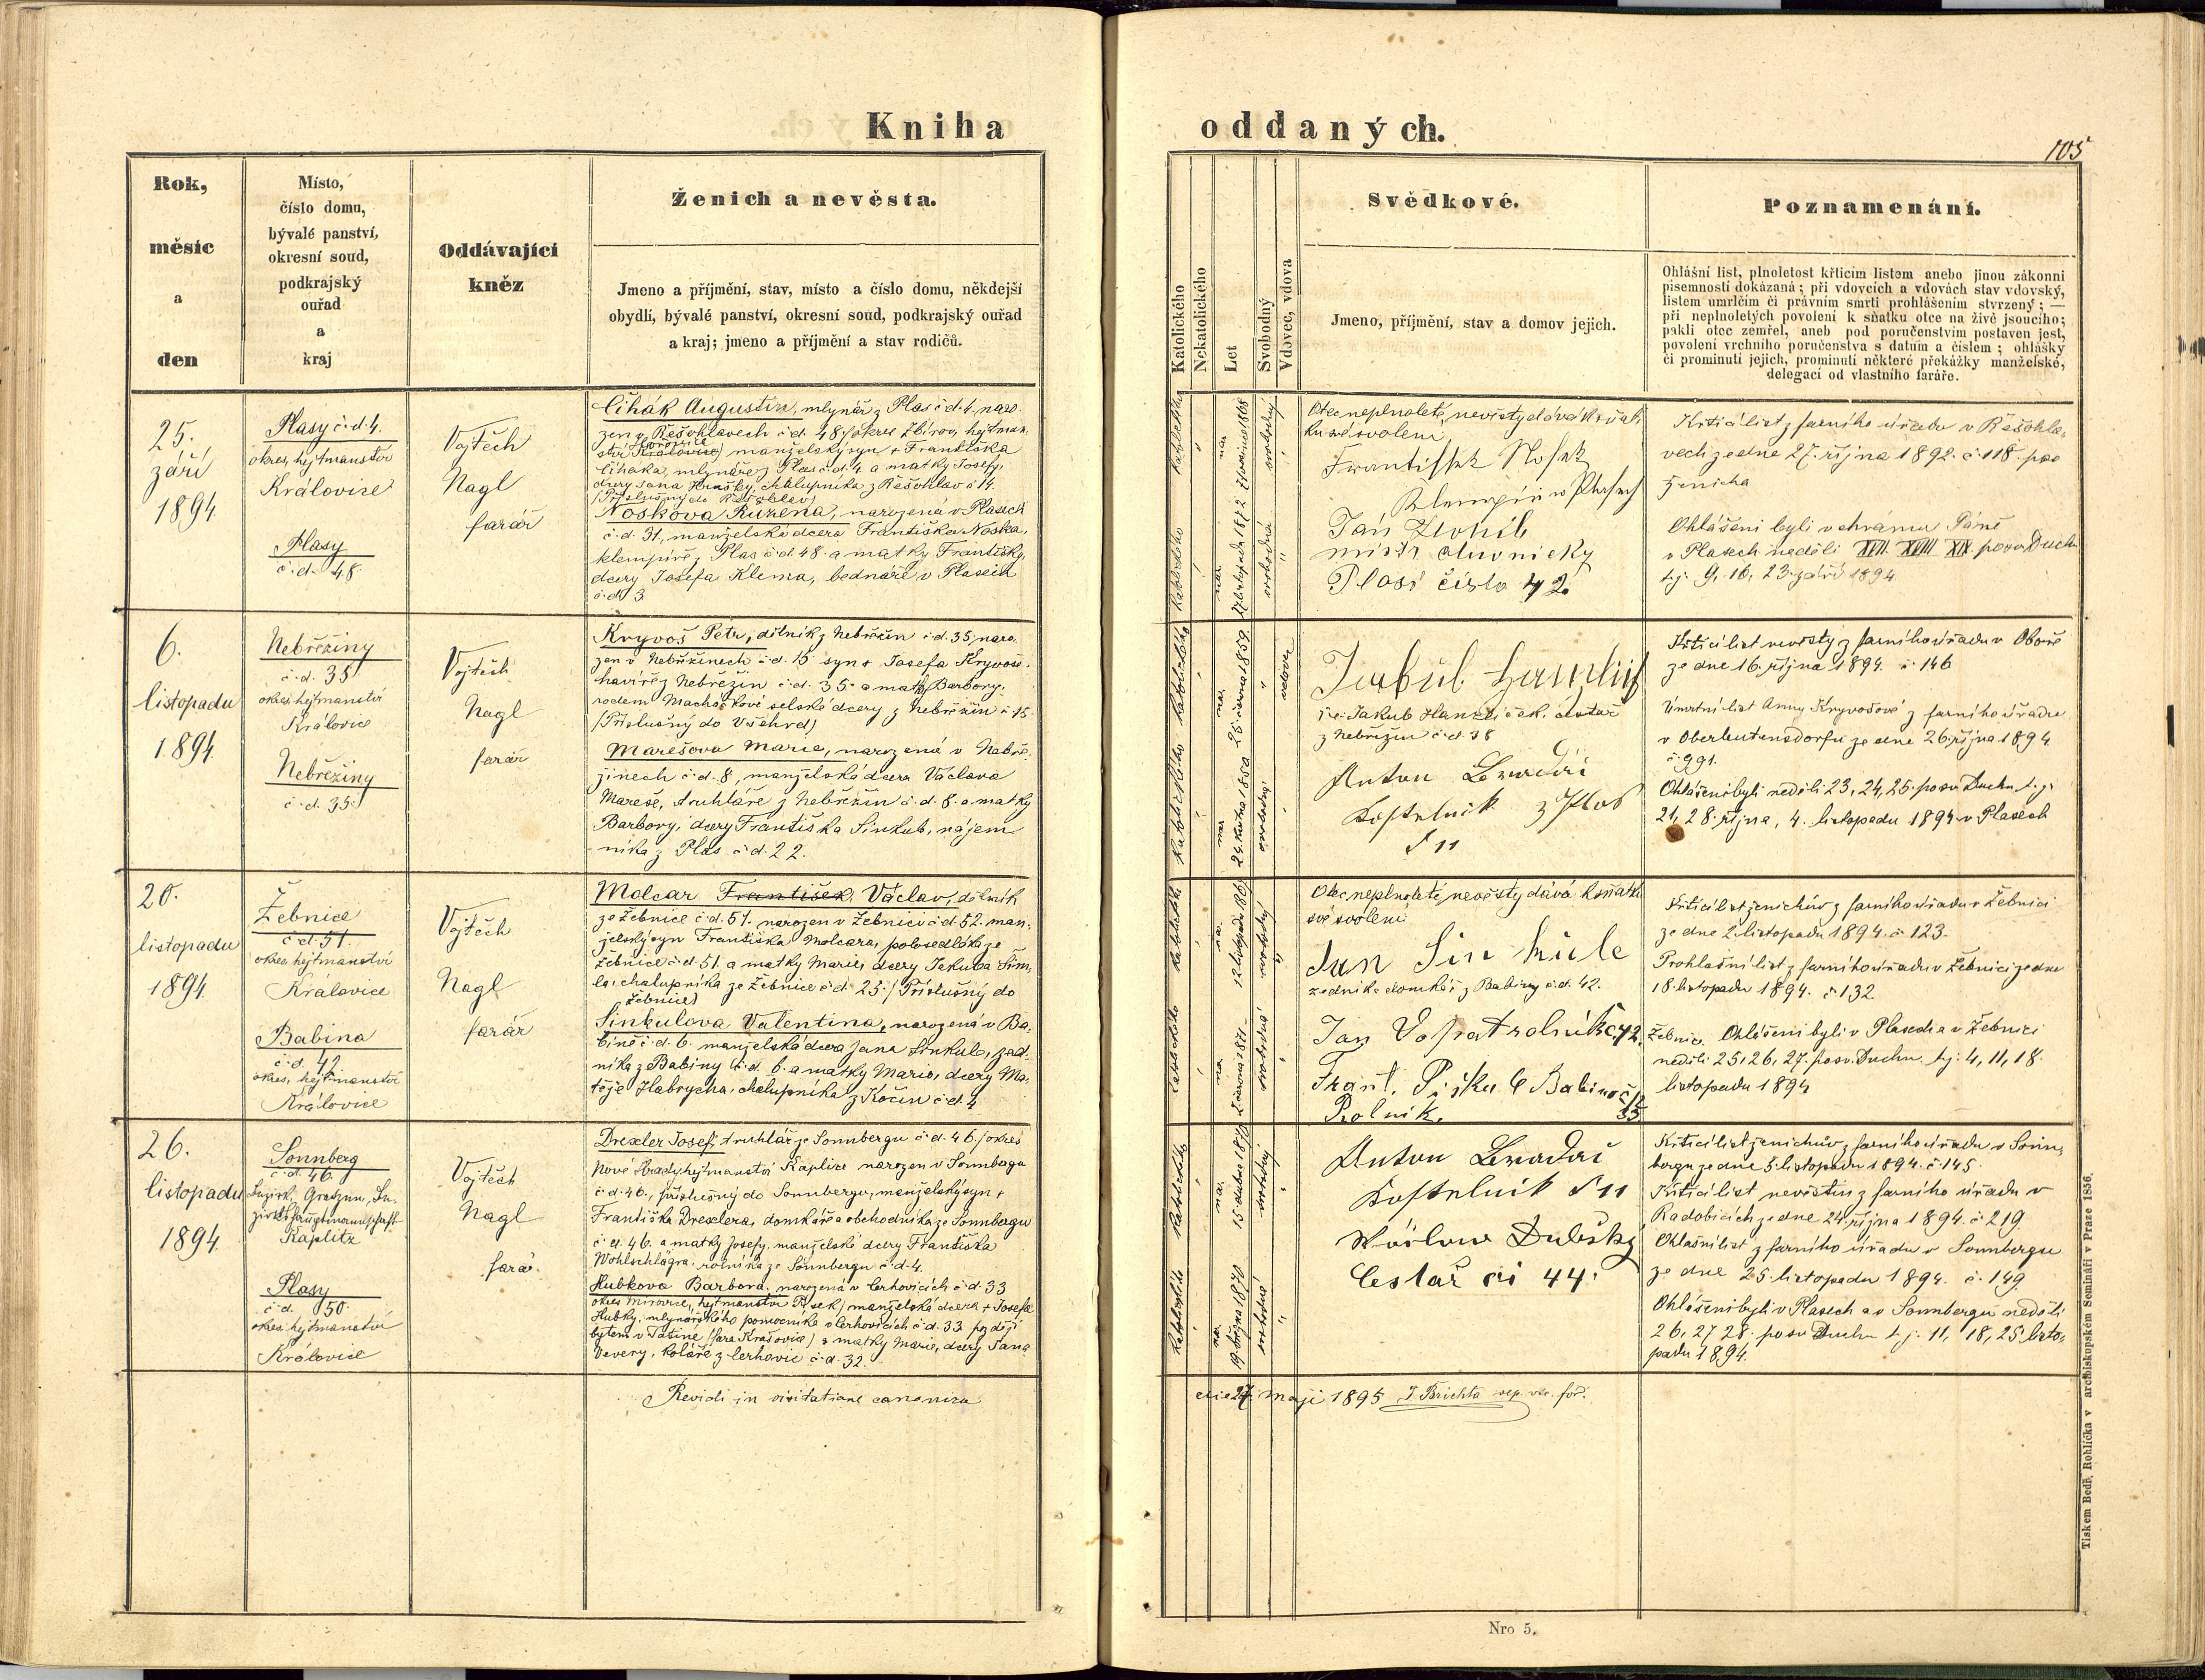 Kniha
oddaných.
105
Rok,
měsíc
a
den
Místo,
číslo domu,
bývalé panství,
okresní soud,
podkrajský
ouřad
a
kraj
Oddávající
kněz
Ženich a nevěsta.
Jmeno a příjmění, stav, místo a číslo domu, někdejší
obydlí, bývalé panství, okresní soud, podkrajský ouřad
a kraj; jmeno a příjmění a stav rodičů.
Katolického
Nekatolického
Let
Svobodný
Vdovec, vdova
Svědkové.
Jmeno, příjmění, stav a domov jejich.
Poznamenání.
Ohlášní list, plnoletost křticím listem anebo jinou zákonní
písemností dokázaná; při vdovcích a vdovách stav vdovský,
listem umrlčím či právním smrti prohlášením stvrzený; —
při neplnoletých povolení k sňatku otce na živě jsoucího;
pakli otec zemřel, aneb pod poručenstvím postaven jest,
povolení vrchního poručenstva s datum a číslem; ohlášky
či prominutí jejich, prominutí některé překážky manželské,
delegací od vlastního faráře.
25.
září
1894
Plasy č. d. 4.
okres, hejtmanství
Královice
Plasy
č. d. 48.
Vojtěch
Nagl
farář
Čihák Augustin, mlynář z Plas č. d. 4, naro-
zen v Řešohlavech č. d. 48 /okres Zbirov, hejtman-
ství Hořovice manželský syn + Františka
Čiháka, mlynáře z Plas č. d. 4 a matky Josefy,
dcery Jana Hrušky, chalupníka z Řešohlav č. 14.
/Příslušný do Řešohlav/
Nosková Růžena, narozená v Plasech
č. d. 31, manželská dcera Františka Noska,
klempíře z Plas č. d. 48 a matky Františky,
dcery Josefa Klema, bednáře v Plasech
č. d. 3
katolického
katolického
27. listopadu 1872
svobodný
svobodná
Otec neplnoleté nevěsty dává k sňat-
ku své svolení
František Nosek
Klempíř w Plasech
Jan
mistr
Plasi číslo 42
Křticí list z farního úřadu v Řešohla-
vech ze dne 27. října 1892. č. 118. pro
ženicha
Ohlášeni byli v chrámu Páně
v Plasech neděli XVII. XVIII XIX. po sv. Duchu
t. j. 9, 16, 23. září 1894
6.
listopadu
1894
Nebřeziny
č. d. 35
okres, hejtmanství
Královice
Nebřeziny
č. d. 35.
Vojtěch
Nagl
farář
Kryvoš Petr, dělník z Nebřezin č. d. 35, naro-
zen v Nebřezinech č. d. 15 syn + Josefa Kryvoše
havíře z Nebřezin č. d. 35 a matky Barbory,
rodem Macháčkové selské dcery z Nebřezin č. 15
/Příslušný do Všehrd/
Marešova Marie, narozená v Nebře-
zinech č. d. 8, manželská dcera Václava
Mareše, truhláře z Nebřezin č. d. 8. a matky
Barbory, dcery Františka Sinkule, nájem-
níka z Plas č. d. 22.
katolického
katolického
25. června 1859
24. 1850
vdovec
svobodná
Jakub
t. j. Jakub Hanzlíček,
z Nebřezin č. d. 38
Anton
Kostelnik z Plas
N 11
Křticí list nevěsty z farního úřadu v Oboře
ze dne 16. října 1894 č. 146
Úmrtní list Anny Kryvošové z farního úřadu
v Oberleutensdorfu ze dne 26. října 1894
č. 991.
Ohlášeni byli neděli 23, 24, 25. po sv. Duchu t. j.
21, 28. října, 4. listopadu 1894 v Plasech
20.
listopadu
1894
Žebnice
č. d. 51.
okres, hejtmanství
Královice
Babina
č. d. 42
okres, hejtmanství
Královice
Vojtěch
Nagl
farář
Molcar František Václav, dělník
ze Žebnice č. d. 51. narozen v Žebnici č. d. 52. man-
želský syn Františka Molcara, polosedláka ze
Žebnice č. d. 51 a matky Marie, dcery Jakuba Šim-
le, chalupníka ze Žebnice č. d. 25. /Příslušný do
Žebnice/
Sinkulova Valentina, narozená v Ba-
bině č. d. 6. manželská dcera Jana Sinkule, zed-
níka z Babiny č. d. 6. a matky Marie, dcery Ma-
těje Habrycha, chalupníka z Kočin č. d. 4
katolického
katolického
12. listopadu
června 1871
svobodný
svobodná
Otec neplnoleté nevěsty dává k sňatku
své svolení
Jan Sinkule
zedník a domkář z Babiny č. d. 42.
Jan Vopat rolník č. 42
Žebnice
Frant. Babina č.
Rolník. 35
Křticí list ženichův z farního úřadu v Žebnici
ze dne 2. listopadu 1894. č. 123.
Prohlašní list z farního úřadu v Žebnici ze dne
18. listopadu 1894. č. 132.
Ohlášeni byli v Plasech a v Žebnici
neděli 25, 26, 27. po sv. Duchu t. j. 4, 11, 18.
listopadu 1894
26.
listopadu
1894
Sonnberg
č. d. 46
Bezirk, Gratzen, Be-
zirkshauptmannschaft
Kaplitz
Plasy
č. d. 50.
okres, hejtmanství
Královice
Vojtěch
Nagl
farář.
Drexler Josef, truhlář ze Sonnbergu č. d. 46. /okres
Nové Hrady, hejtmanství Kaplice narozen v Sonnbergu
č. d. 46., příslušný do Sonnbergu, manželský syn +
Františka Drexlera, domkáře a obchodníka ze Sonnbergu
č. d. 46. a matky Josefy, manželské dcery Františka
Wohlschlägra, rolníka ze Sonnbergu č. d. 4.
Hubkova Barbora, narozená v Cerhovicích č. d. 33
okres Mirovice, hejtmanství Písek, manželská dcera + Josefa
Hubky, mlynářského pomocníka v Cerhovicích č. d. 33 později
bytem v Tatině /fara Krašovice/ a matky Marie, dcery Jana
Severy, koláře z Cerhovic č. d. 32.
katolického
katolického
15. dubna
19. března 1870
svobodný
svobodná
Anton
Kostelnik N 11
Wáclaw Dubský
Cestář či 44.
Křticí list ženichův z farního úřadu v Sonn-
bergu ze dne 5. listopadu 1894. č. 145.
Křticí list nevěstin z farního úřadu v
Radobicích ze dne 24. října 1894. č. 219
Ohlašní list z farního úřadu v Sonnbergu
ze dne 25. listopadu 1894. č. 149.
Ohlášeni byli v Plasech a v Sonnbergu neděli
26, 27 28. po sv. Duchu t. j. 11, 18, 25 listo-
padu 1894.
Revidi in visitatione canonica
die 27. maji 1895 J. Brichta
Nro 5.
Tiskem Bedř. Rohlíčka v arcibiskupském Semináři v Praze 1856.